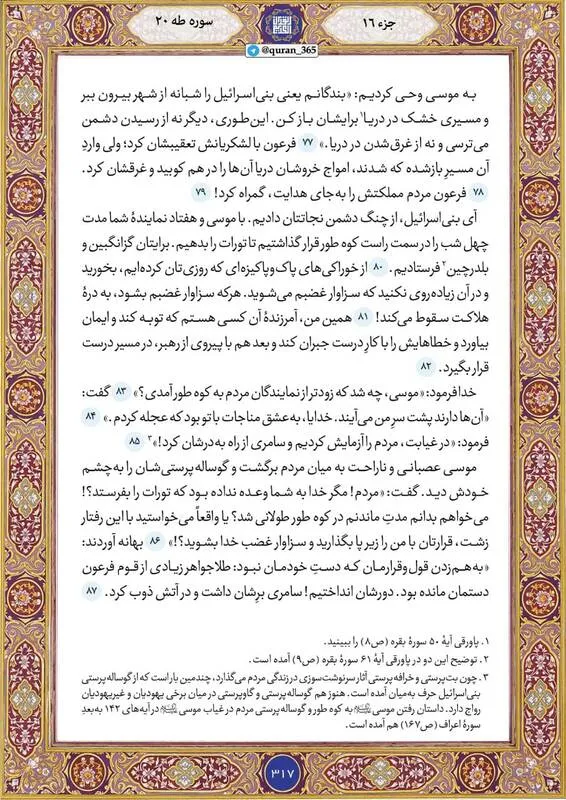 جزء ۱۶
سوره طه ۲۰
@quran_365
به موسی وحی کردیم: «بندگانم یعنی بنی‌اسرائیل را شبانه از شهر بیرون ببر
و مسیری خشک در دریا۱ برایشان باز کن. این‌طوری، دیگر نه از رسیدن دشمن
می‌ترسی و نه از غرق‌شدن در دریا.» ۷۷ فرعون با لشکریانش تعقیبشان کرد؛ ولی واردِ
آن مسیرِ بازشده که شدند، امواج خروشان دریا آن‌ها را در هم کوبید و غرقشان کرد.
۷۸ فرعون مردم مملکتش را به‌جای هدایت، گمراه کرد! ۷۹
آی بنی‌اسرائیل، از چنگ دشمن نجاتتان دادیم. با موسی و هفتاد نمایندهٔ شما مدت
چهل شب را در سمت راست کوه طور قرار گذاشتیم تا تورات را بدهیم. برایتان گزانگبین و
بلدرچین۲ فرستادیم. ۸۰ از خوراکی‌های پاک‌وپاکیزه‌ای که روزی‌تان کرده‌ایم، بخورید
و در آن زیاده‌روی نکنید که سزاوار غضبم می‌شوید. هرکه سزاوار غضبم بشود، به درهٔ
هلاکت سقوط می‌کند! ۸۱ همین من، آمرزندهٔ آن کسی هستم که توبه کند و ایمان
بیاورد و خطاهایش را با کارِ درست جبران کند و بعد هم با پیروی از رهبر، در مسیر درست
قرار بگیرد. ۸۲
خدا فرمود: «موسی، چه شد که زودتر از نمایندگان مردم به کوه طور آمدی؟» ۸۳ گفت:
«آن‌ها دارند پشت سرِ من می‌آیند. خدایا، به‌عشق مناجات با تو بود که عجله کردم.» ۸۴
فرمود: «در غیابت، مردم را آزمایش کردیم و سامری از راه به‌درشان کرد!»۳ ۸۵
موسی عصبانی و ناراحت به میان مردم برگشت و گوساله‌پرستی‌شان را به‌چشم
خودش دید. گفت: «مردم! مگر خدا به شما وعده نداده بود که تورات را بفرستد؟!
می‌خواهم بدانم مدتِ ماندنم در کوه طور طولانی شد؟ یا واقعاً می‌خواستید با این رفتار
زشت، قرارتان با من را زیر پا بگذارید و سزاوار غضب خدا بشوید؟!» ۸۶ بهانه آوردند:
«به‌هم‌زدن قول‌وقرارمان که دستِ خودمان نبود: طلاجواهر زیادی از قوم فرعون
دستمان مانده بود. دورشان انداختیم! سامری برِشان داشت و در آتش ذوب کرد. ۸۷
۱. پاورقی آیهٔ ۵۰ سورهٔ بقره (ص۸) را ببینید.
۲. توضیح این دو در پاورقی آیهٔ ۶۱ سورهٔ بقره (ص۹) آمده است.
۳. چون بت‌پرستی و خرافه‌پرستی آثار سرنوشت‌سوزی در زندگی مردم می‌گذارد، چندمین بار است که از گوساله‌پرستی
بنی‌اسرائیل حرف به‌میان آمده است. هنوز هم گوساله‌پرستی و گاوپرستی در میان برخی یهودیان و غیریهودیان
رواج دارد. داستان رفتن موسی به کوه طور و گوساله‌پرستی مردم در غیاب موسی در آیه‌های ۱۴۲ به‌بعدِ
سورهٔ اعراف (ص۱۶۷) هم آمده است.
۳۱۷